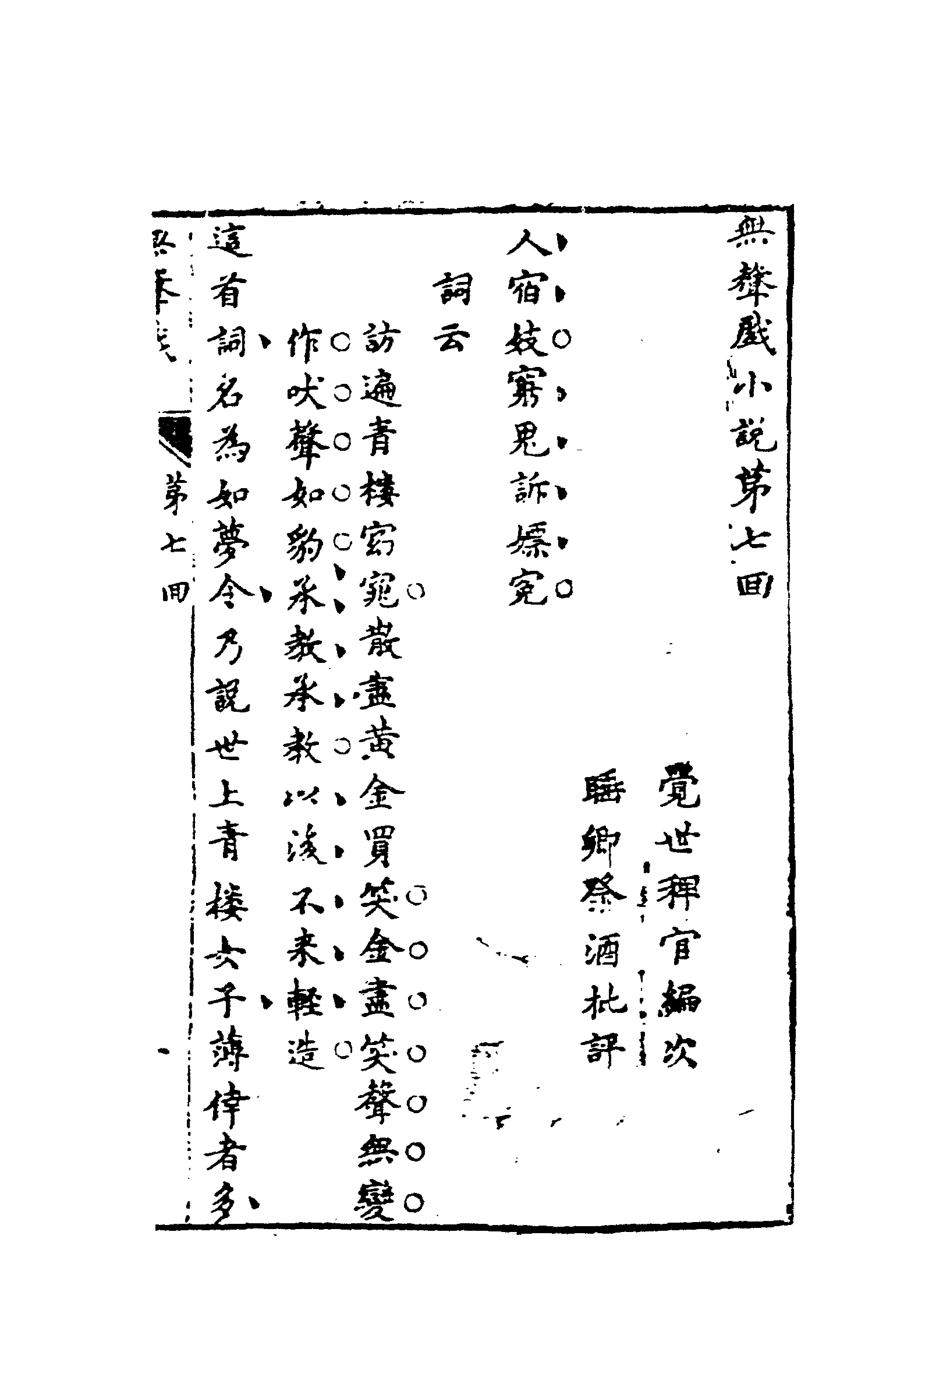 無聲戲小說第七回
覺世稗官編次
睡鄉祭酒批評
人宿妓窮鬼訴嫖冤
詞云
訪遍青樓窈窕散盡黃金買笑金盡笑聲無變
作吠聲如豹承教承教以後不来輕造
這首詞名為如夢令乃說世上青樓女子薄倖者多
無聲戲 第七回